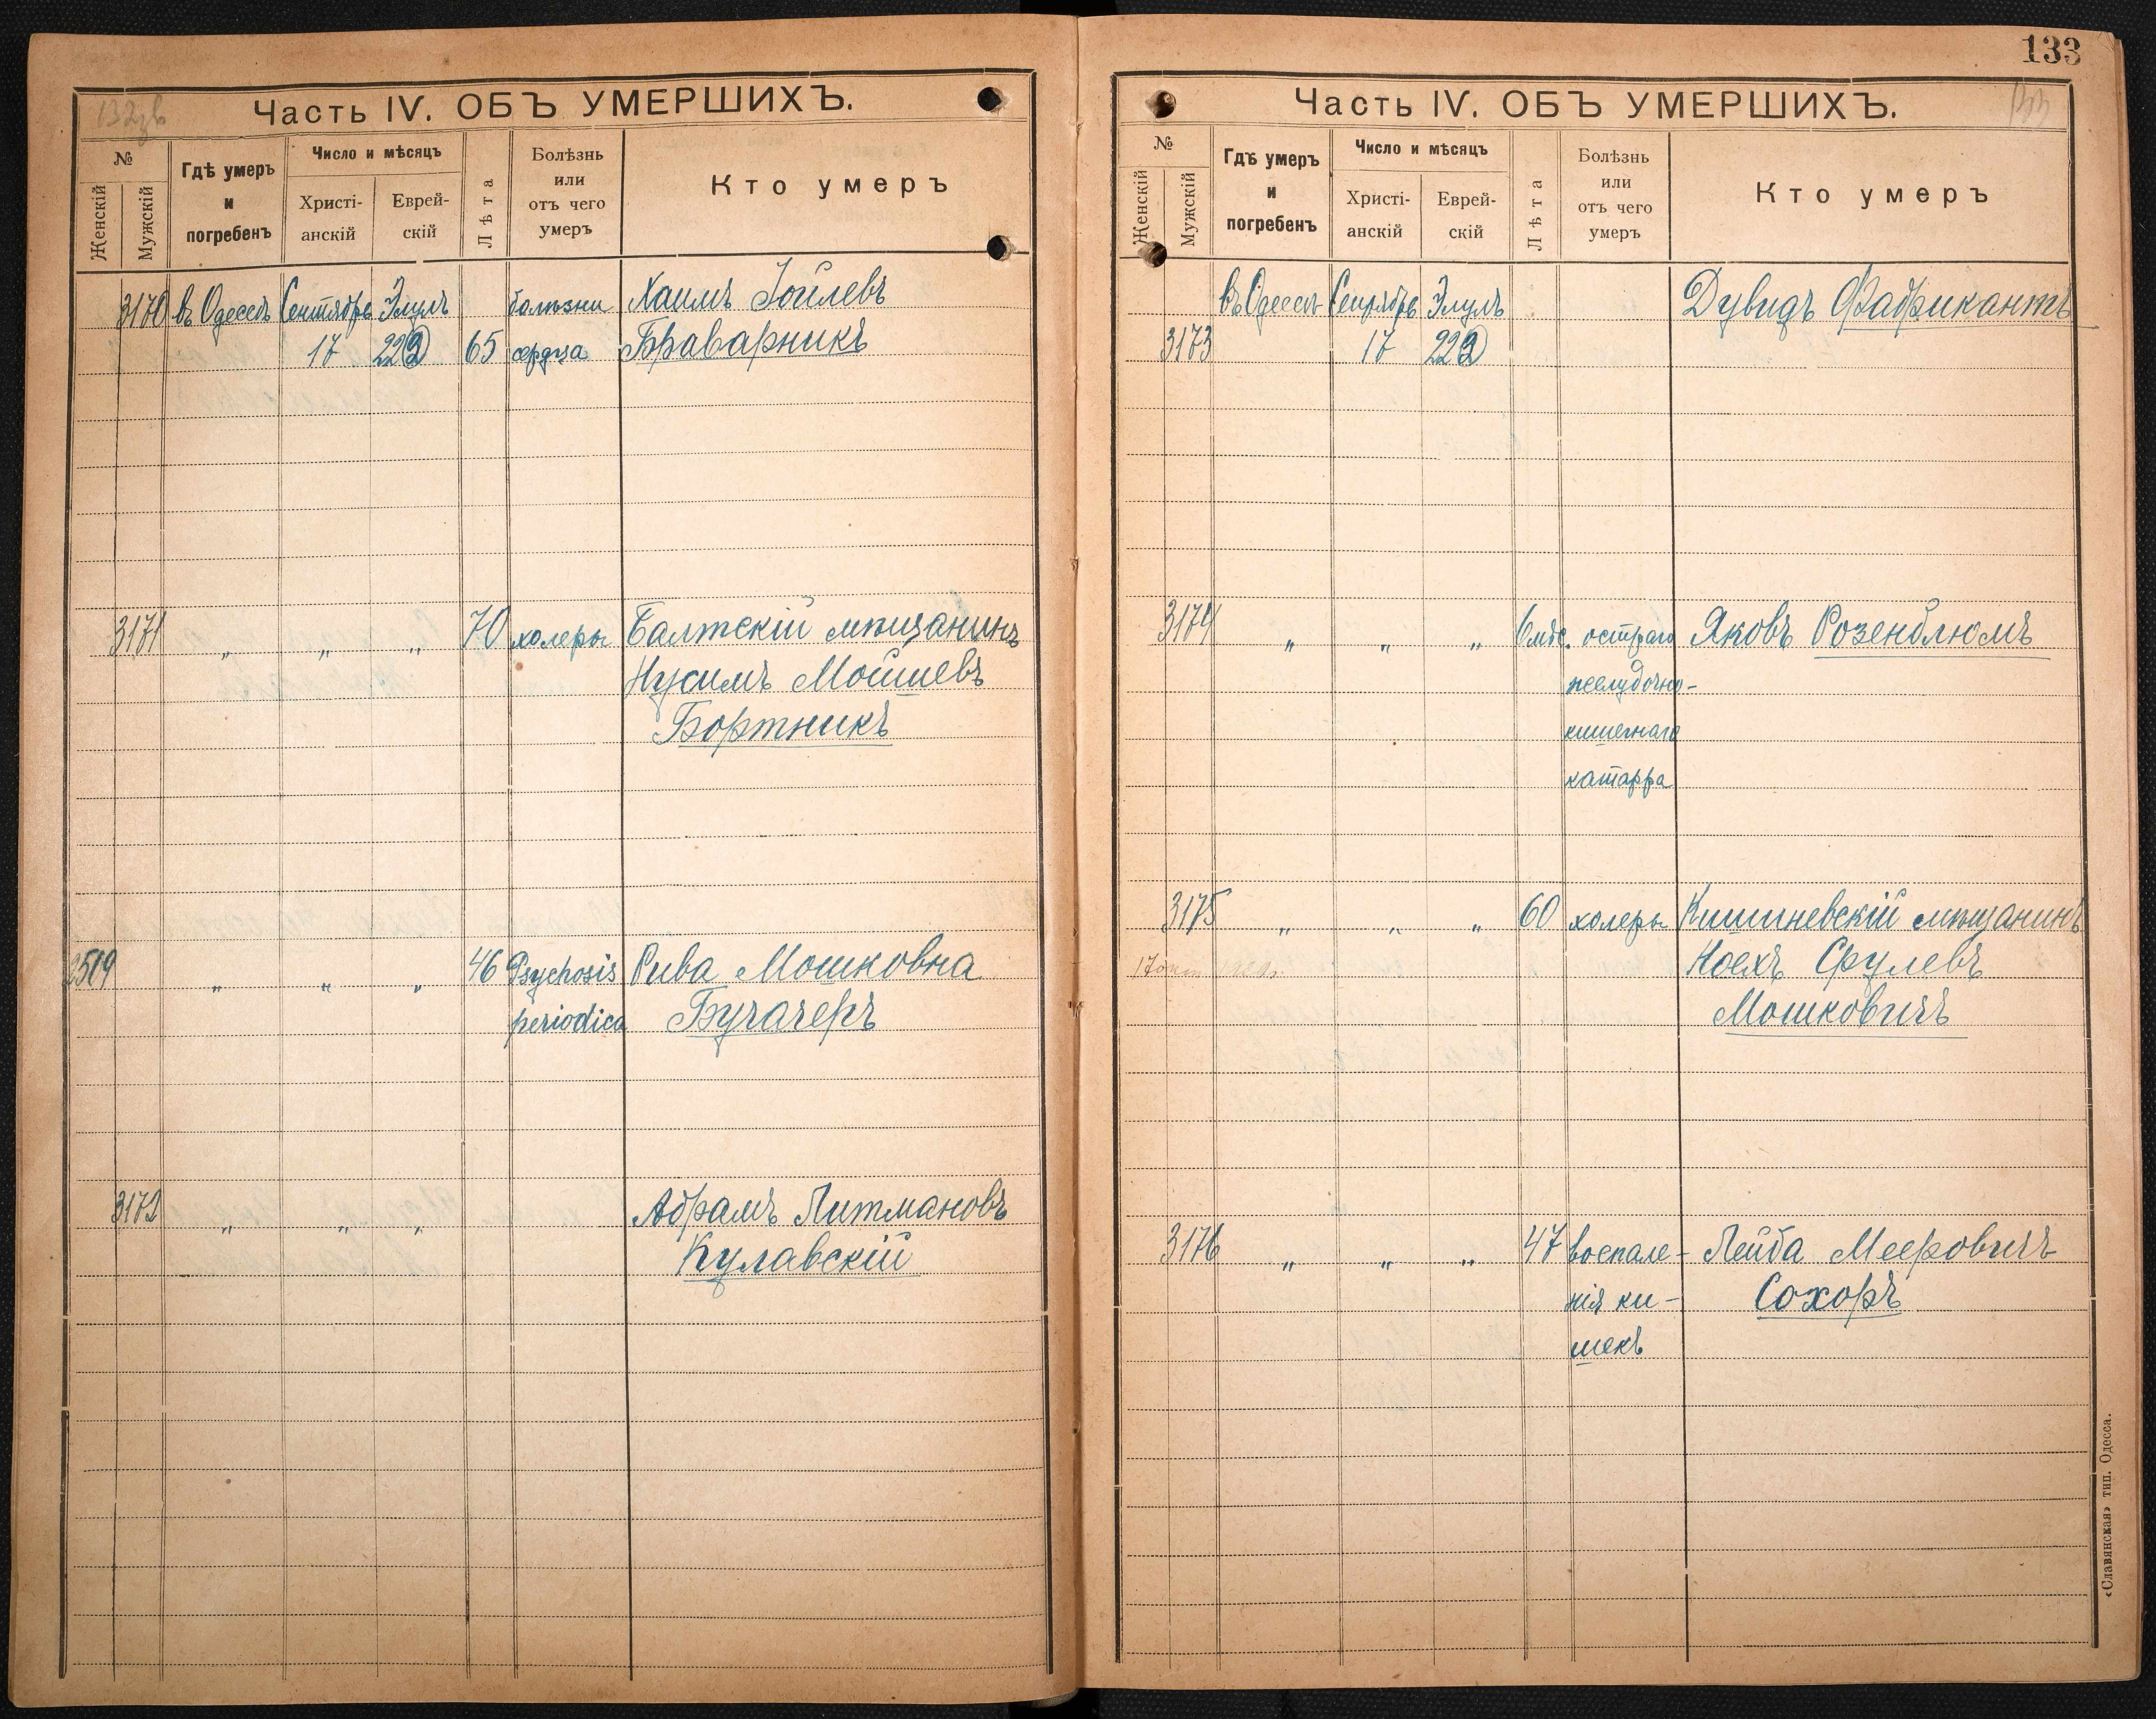 133
Часть IV. ОБЪ УМЕРШИХЪ.
№
Женскій
Мужскій
Гдѣ умеръ
и
погребенъ
Число и мѣсяцъ
Христі-
анскій
Еврей-
скій
Лѣта
Болѣзнь
или
отъ чего
умеръ
Кто умеръ
3170 въ Одессѣ Сентябрь Элулъ болѣзни Хаимъ Іойлевъ
17 22 65 сердца Браварникъ
3171 " " " 70 холеры Балтскій мѣщанинъ
Нусимъ Мойшевъ
Бортникъ
2519 " " " 46 Psychosis Рива Мошковна
periodica Бучачеръ
3172 " " " Абрамъ Литмановъ
Кулавскій
Часть IV. ОБЪ УМЕРШИХЪ.
№
Женскій
Мужскій
Гдѣ умеръ
и
погребенъ
Число и мѣсяцъ
Христі-
анскій
Еврей-
скій
Лѣта
Болѣзнь
или
отъ чего
умеръ
Кто умеръ
въ Одессѣ Сентябрь Элулъ Дувидъ Фабрикантъ
3173 17 22
3174 " " " 6 мѣс. остраго Яковъ Розенблюмъ
желудочно-
кишечнаго
катарра
3175 " " " 60 холеры Кишиневскій мѣщанинъ
Ноехъ Срулевъ
Мошковичъ
3176 " " " 47 воспале- Лейба Мееровичъ
нія ки- Сохоръ
шекъ
«Славянская» тип. Одесса.